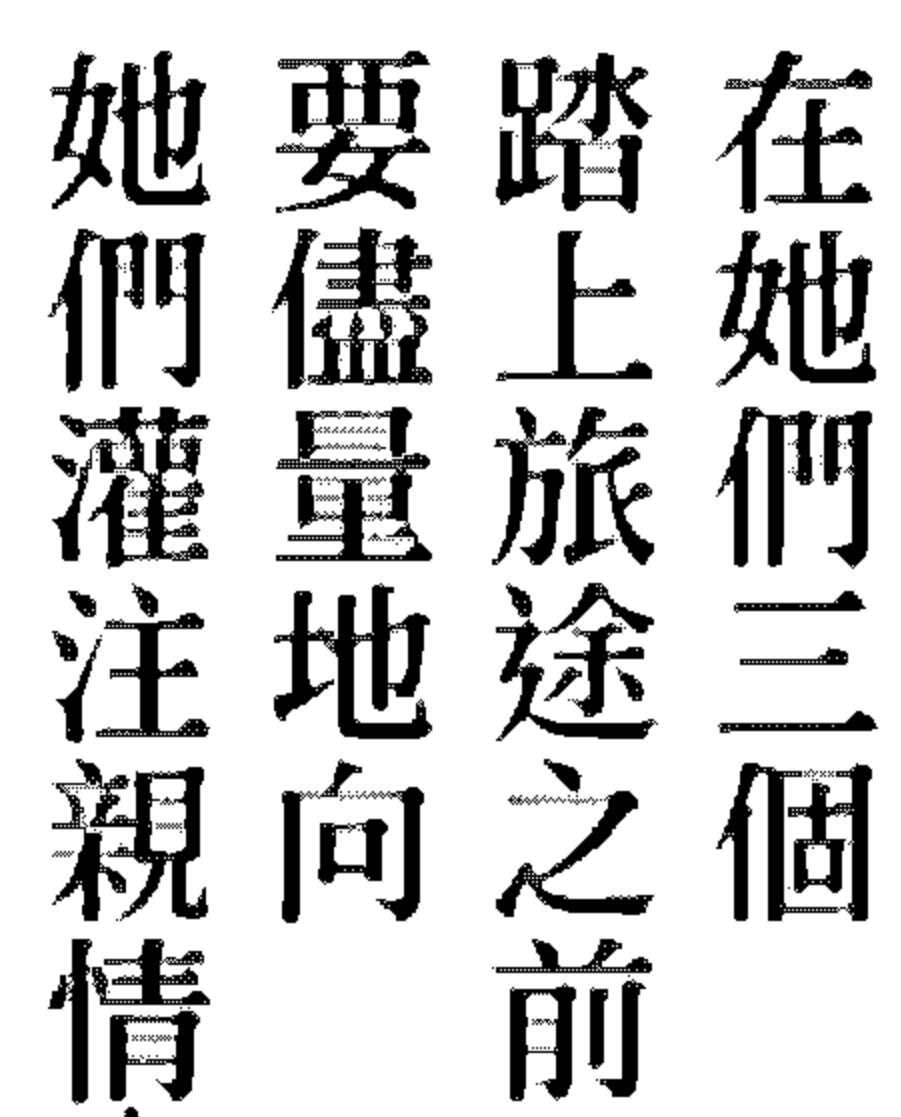 在她們三個
踏上旅途之前
要儘量地向
她們灌注親情